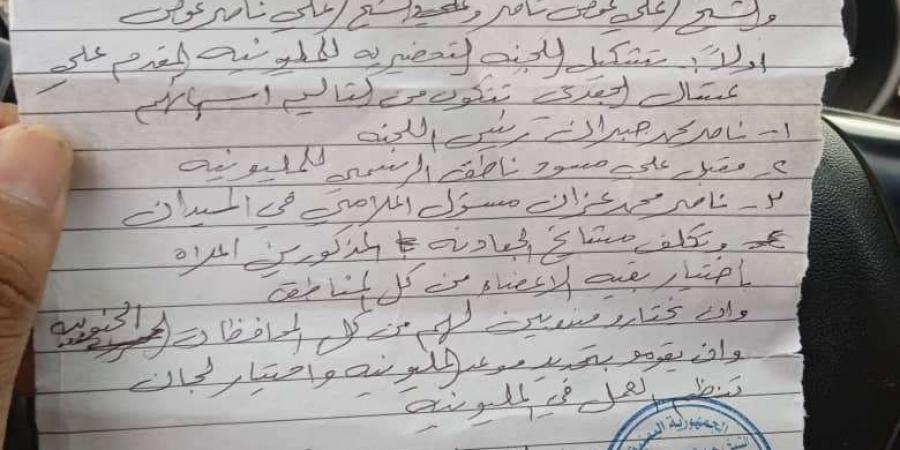 والشيخ / علي عوض ناصر والشيخ / علي ناصر عوض
اولاً:ـ تشكيل اللجنه التحضيريه للمليونيه المقدم علي
عشال الجعدني تتكون من التاليه اسمائهم
١ـ ناصر محمد جبران رئيس اللجنه
٢ـ مقبل علي مسود ناطق الرسمي للمليونيه
٣ـ ناصر محمد عزان مسؤل اعلامي في الميدان
وتكلف مشائخ الجعادنه المذكورين اعلاه
بأختيار بقيه الاعضاء من كل المناطق
وان يختارو مندوبين لهم من كل المحافظات الجنوبيه
وان يقومو بتحديد موعد المليونيه واختيار لجان
تنظم العمل في المليونيه
الجمهورية اليمنية